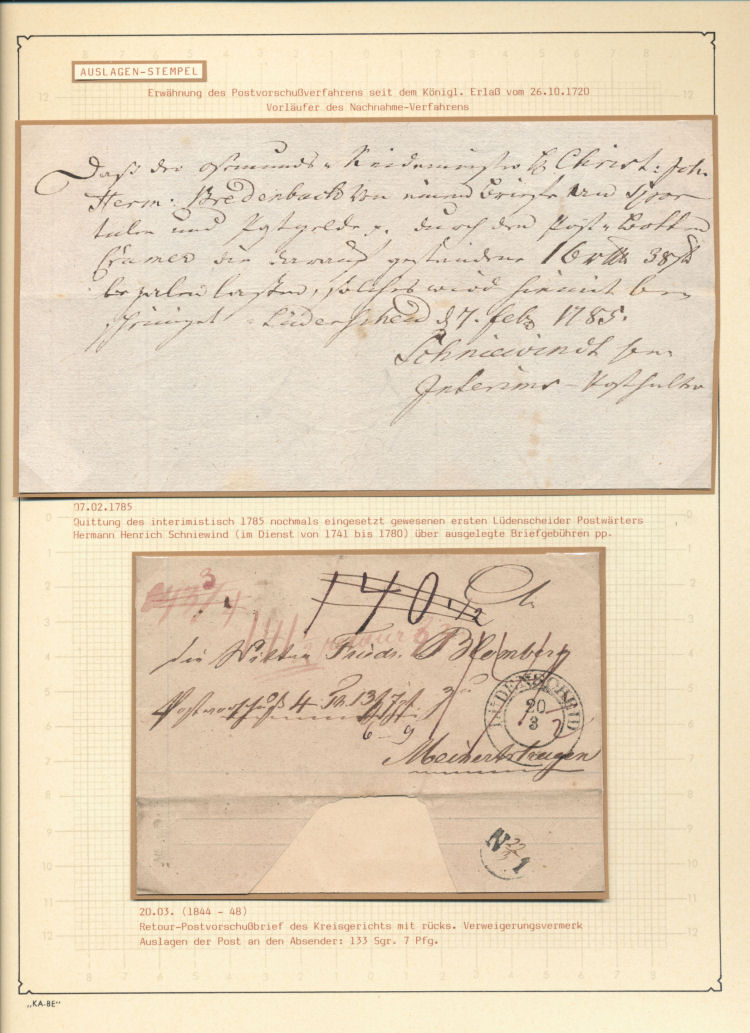 AUSLAGEN-STEMPEL
Erwähnung des Postvorschußverfahrens seit dem Königl. Erlaß vom 26.10.1720
Vorläufer des Nachnahme-Verfahrens
Daß der Christ: Joh.
Herm: Bredenbach von einem
und Postgelde p. durch den Post-Botten
Cramer die darauf gestandene 16 rth 38
bezalen laßen, solches wird hiemit be-
Lüdenscheid d 7. Feb 1785.
Schniewindt sen.
Interims-Posthalter
07.02.1785
Quittung des interimistisch 1785 nochmals eingesetzt gewesenen ersten Lüdenscheider Postwärters
Hermann Henrich Schniewind (im Dienst von 1741 bis 1780) über ausgelegte Briefgebühren pp.
3
140 1/2
An
die Wittwe Friedr. Blomberg
Postvorschuß 4 Th. 13 7 zu
6 9
Meinertzhagen
LÜDENSCHEID
20
3
N 1
20.03. (1844 - 48)
Retour-Postvorschußbrief des Kreisgerichts mit rücks. Verweigerungsvermerk
Auslagen der Post an den Absender: 133 Sgr. 7 Pfg.
„KA-BE"